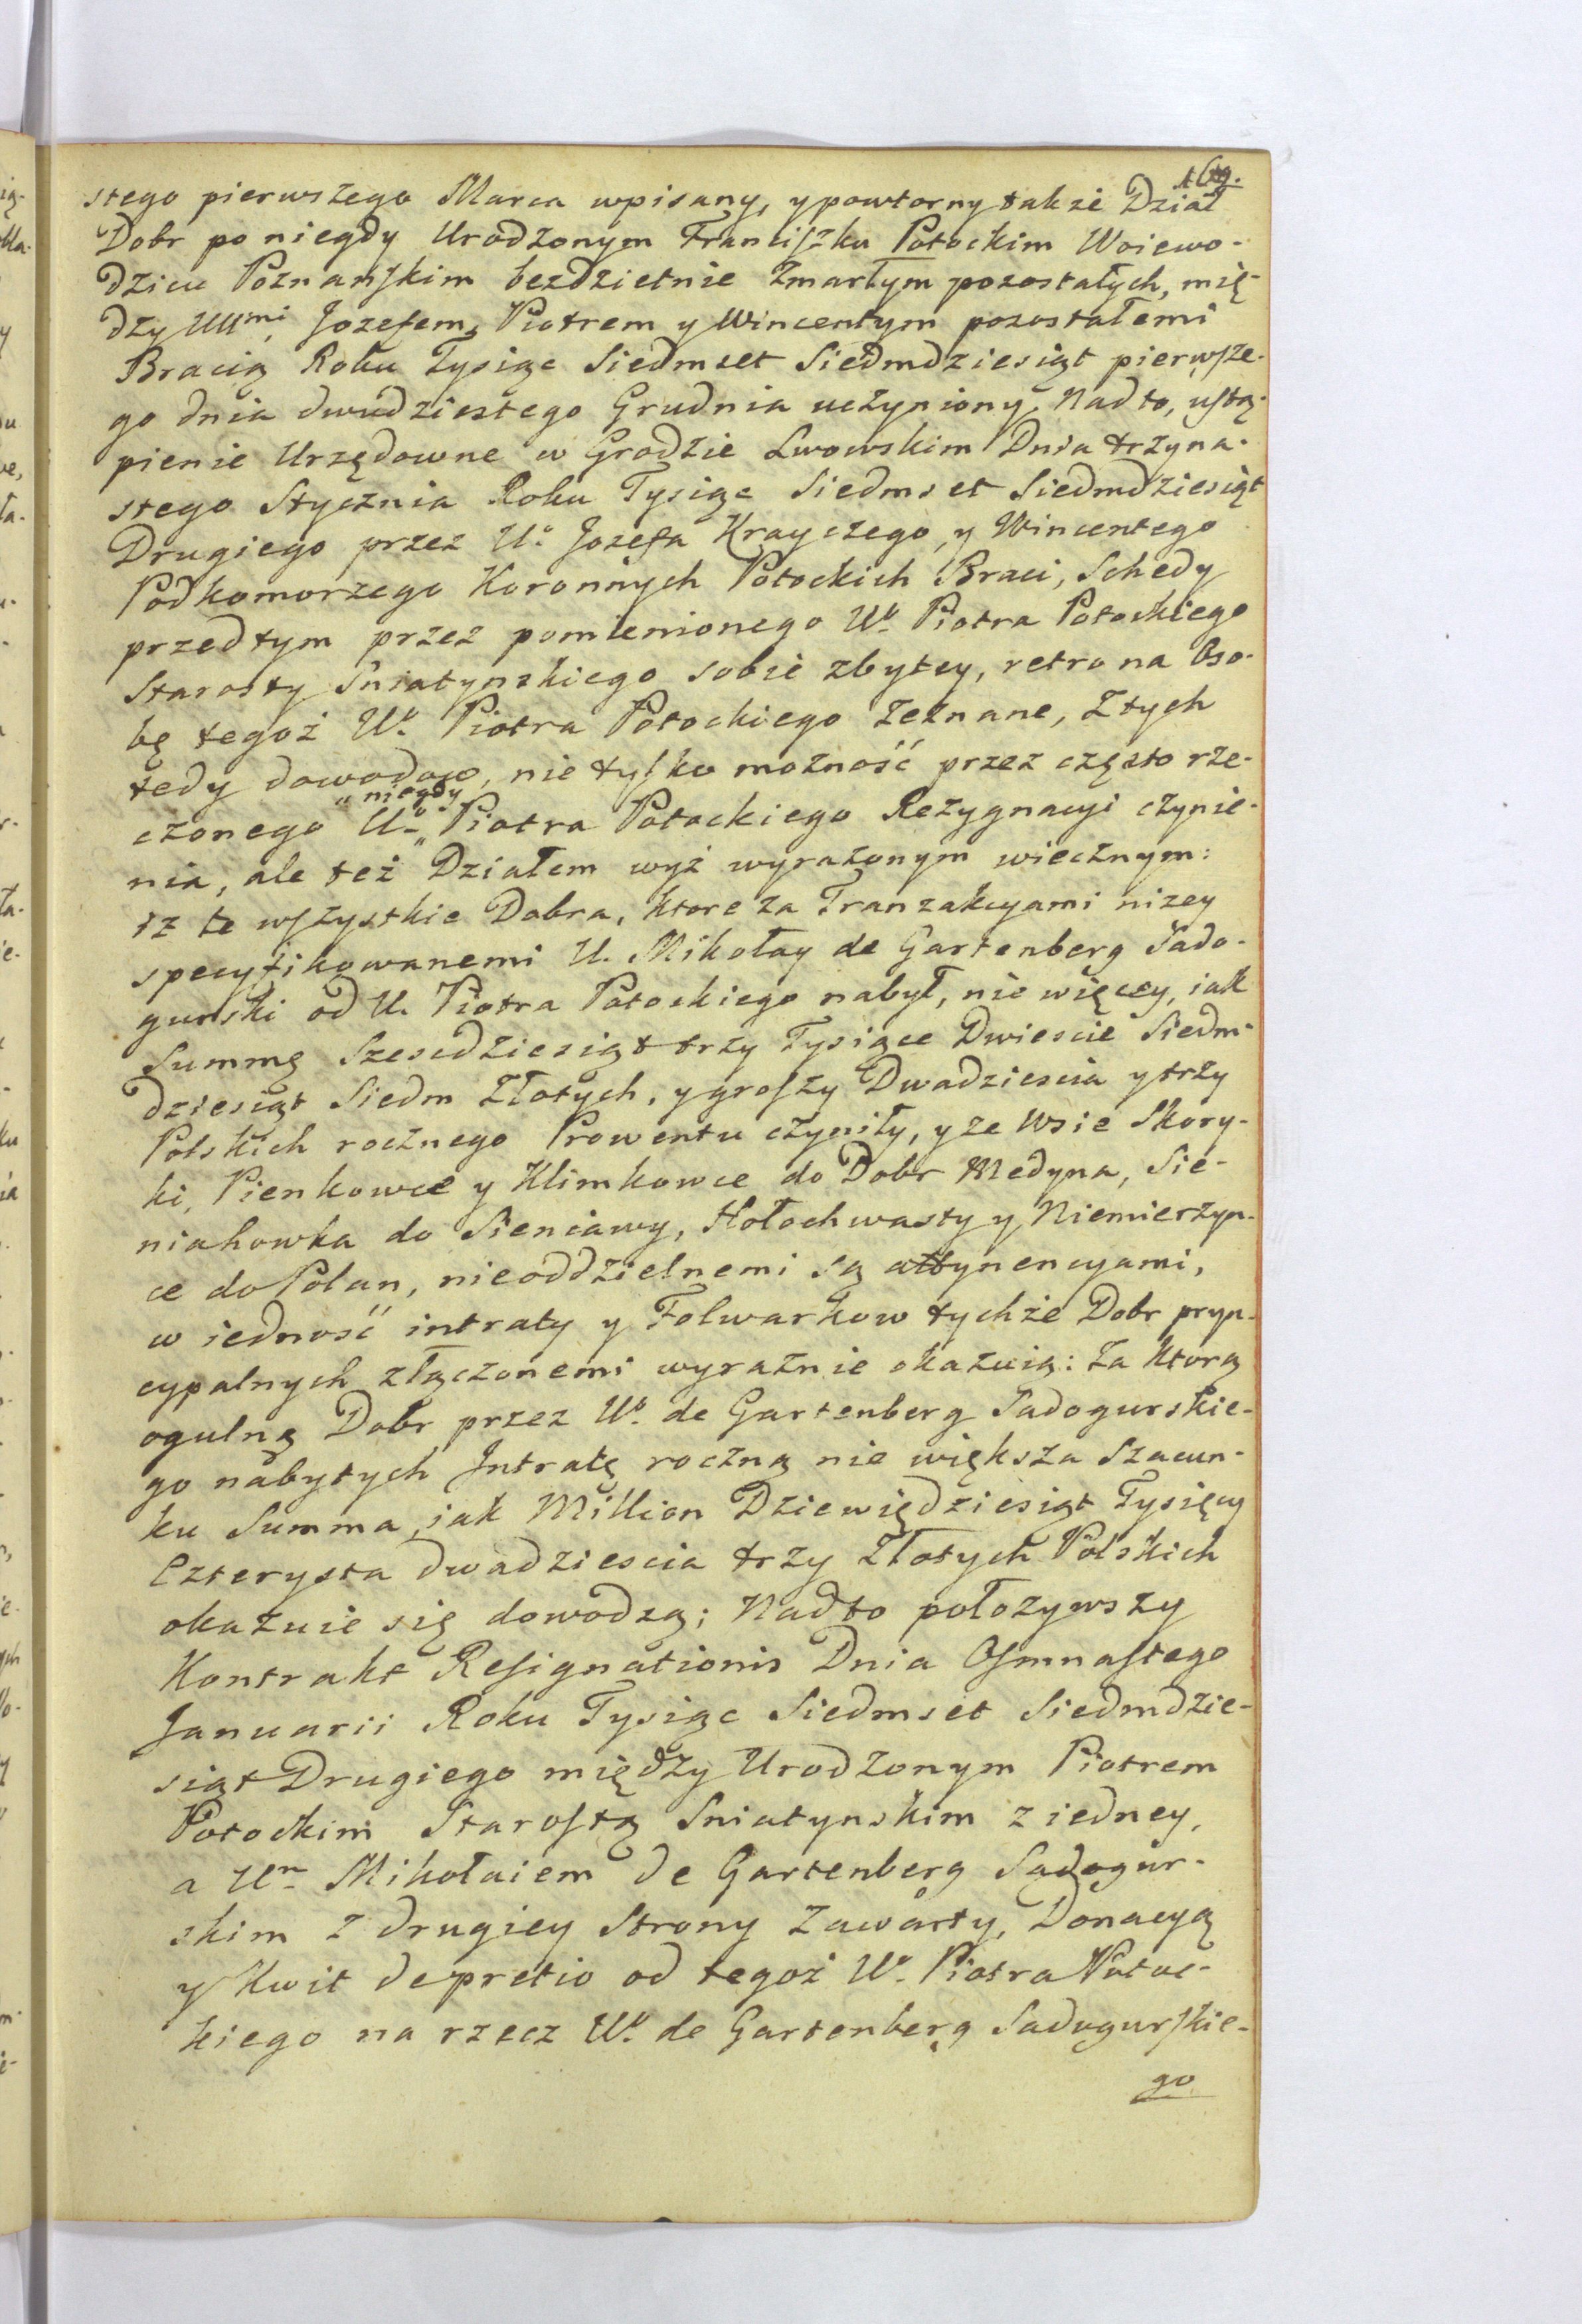 stego pierwszego Marca wpisany, y powtorny także Dział
Dobr po niegdy Urodzonym Franciszku Potockim Woiewo-
dzicu Poznanskim bezdzietnie zmarłym pozostałych, mię-
dzy UUmi Jozefem, Piotrem y Wincentym pozostałemi
Bracią Roku Tysiąc Siedmset Siedmdziesiąt pierwsze-
go dnia dwudziestego Grudnia uczyniony, Nadto, ustą-
pienie Urzędowne w Grodzie Lwowskim Dnia trzyna-
stego Stycznia Roku Tysiąc Siedmset Siedmdziesiąt
Drugiego przez Uo Jozefa Krayczego, y Wincentego
Podkomorzego Koronnych Potockich Braci, Schedy
przedtym przez pomienionego Uo Piotra Potockiego
Starosty Sniatynskiego sobie zbytey, retro na Oso-
bę tegoż Uo Piotra Potockiego zeznane, Z tych
tedy dowodow, nie tylko możność przez często rze-
czonego Uo „niegdy„ Piotra Potockiego Rezygnacyi czynie-
nia, ale też Działem wyż wyrażonym wiecznym:
iż te wszystkie Dobra, ktore za Tranzakcyami niżey
specyfikowanemi U. Mikołay de Gartenberg Sado-
gurski od U. Piotra Potockiego nabył, nie więcey, iak
Summę Szescdziesiąt trzy Tysiące Dwiescie Siedm-
dziesiąt Siedm Złotych, y groszy Dwadziescia y trzy
Polskich rocznego Prowentu czyniły, y że Wsie Skory-
ki, Pienkowce y Klimkowce do Dobr Medyna, Sie-
niahowka do Sieniawy, Hołochwasty y Niemierzyn-
ce do Polan, nieoddzielnemi są attynencyami,
w iedność intraty y Folwarkow tychże Dobr pryn-
cypalnych złączonemi wyraźnie okazuią: Za ktorą
ogulną Dobr przez Uo de Gartenberg Sadogurskie-
go nabytych Intratę roczną nie większa Szacun-
ku Summa, iak Million Dziewięćdziesiąt Tysięcy
Czterysta dwadziescia trzy Złotych Polskich
okazuie się dowodzą; Nadto położywszy
Kontrakt Resignationis Dnia Osmnastego
Januarii Roku Tysiąc Siedmset Siedmdzie-
siąt Drugiego między Urodzonym Piotrem
Potockim Starostą Sniatynskim z iedney,
a Um Mikołaiem de Gartenberg Sadogur-
skim z drugiey Strony Zawarty, Donacyą
y Kwit de pretio od tegoż Uo Piotra Potoc-
kiego na rzecz Uo de Gartenberg Sadogurskie-
go